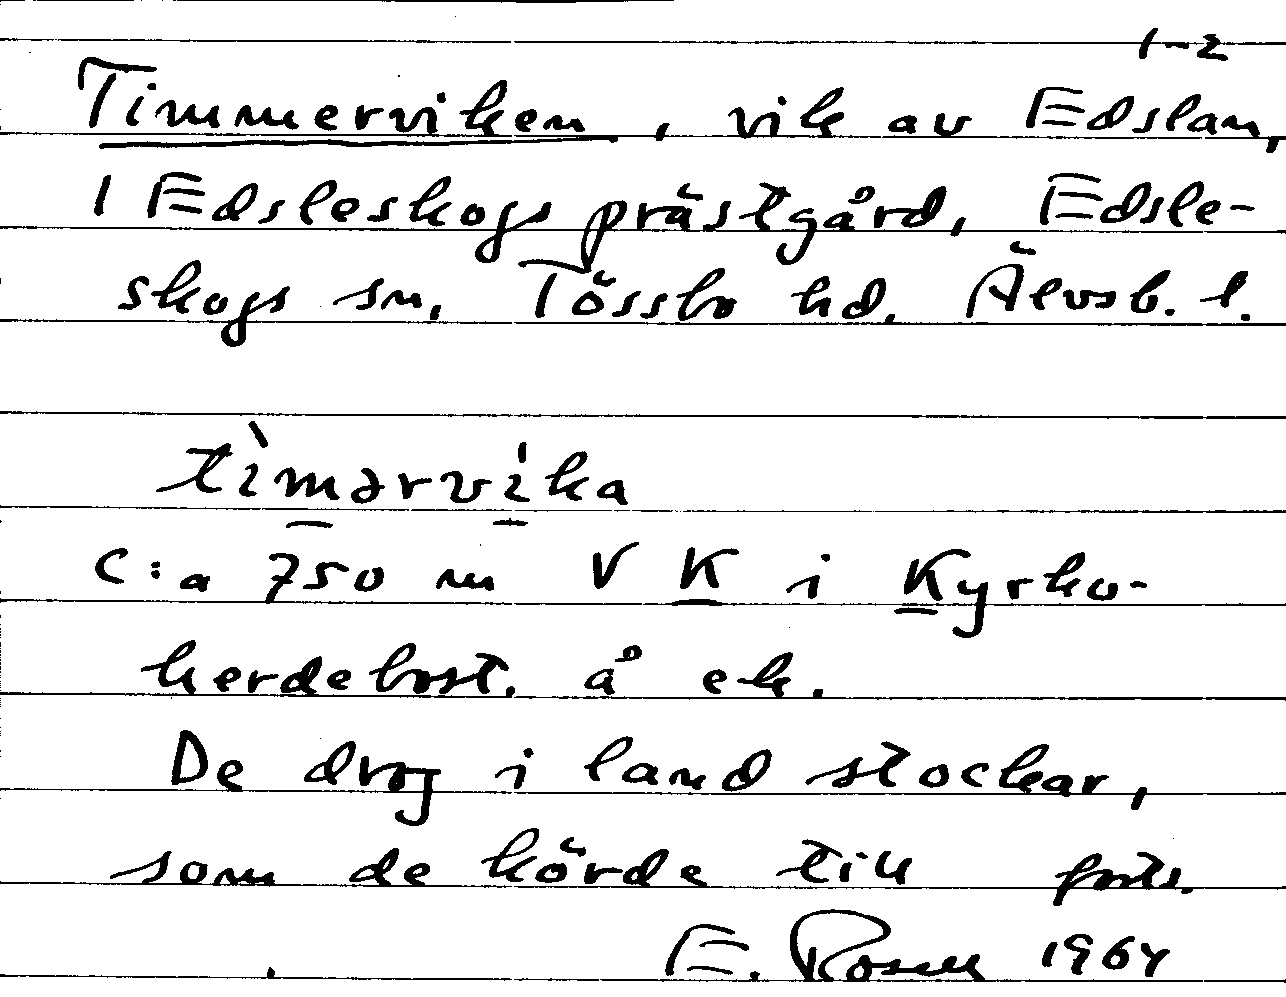 1-2
Timmerviken, vik av Edslan,
i Edsleskogs prästgård, Edsle-
skogs sn, Tössbo hd. Älvsb. l.
tìmərvíka
C:a 750 m V K i Kyrko-
herdebost. å ek.
De drog i land stockar,
som de körde till forts.
E. Rosell 1964